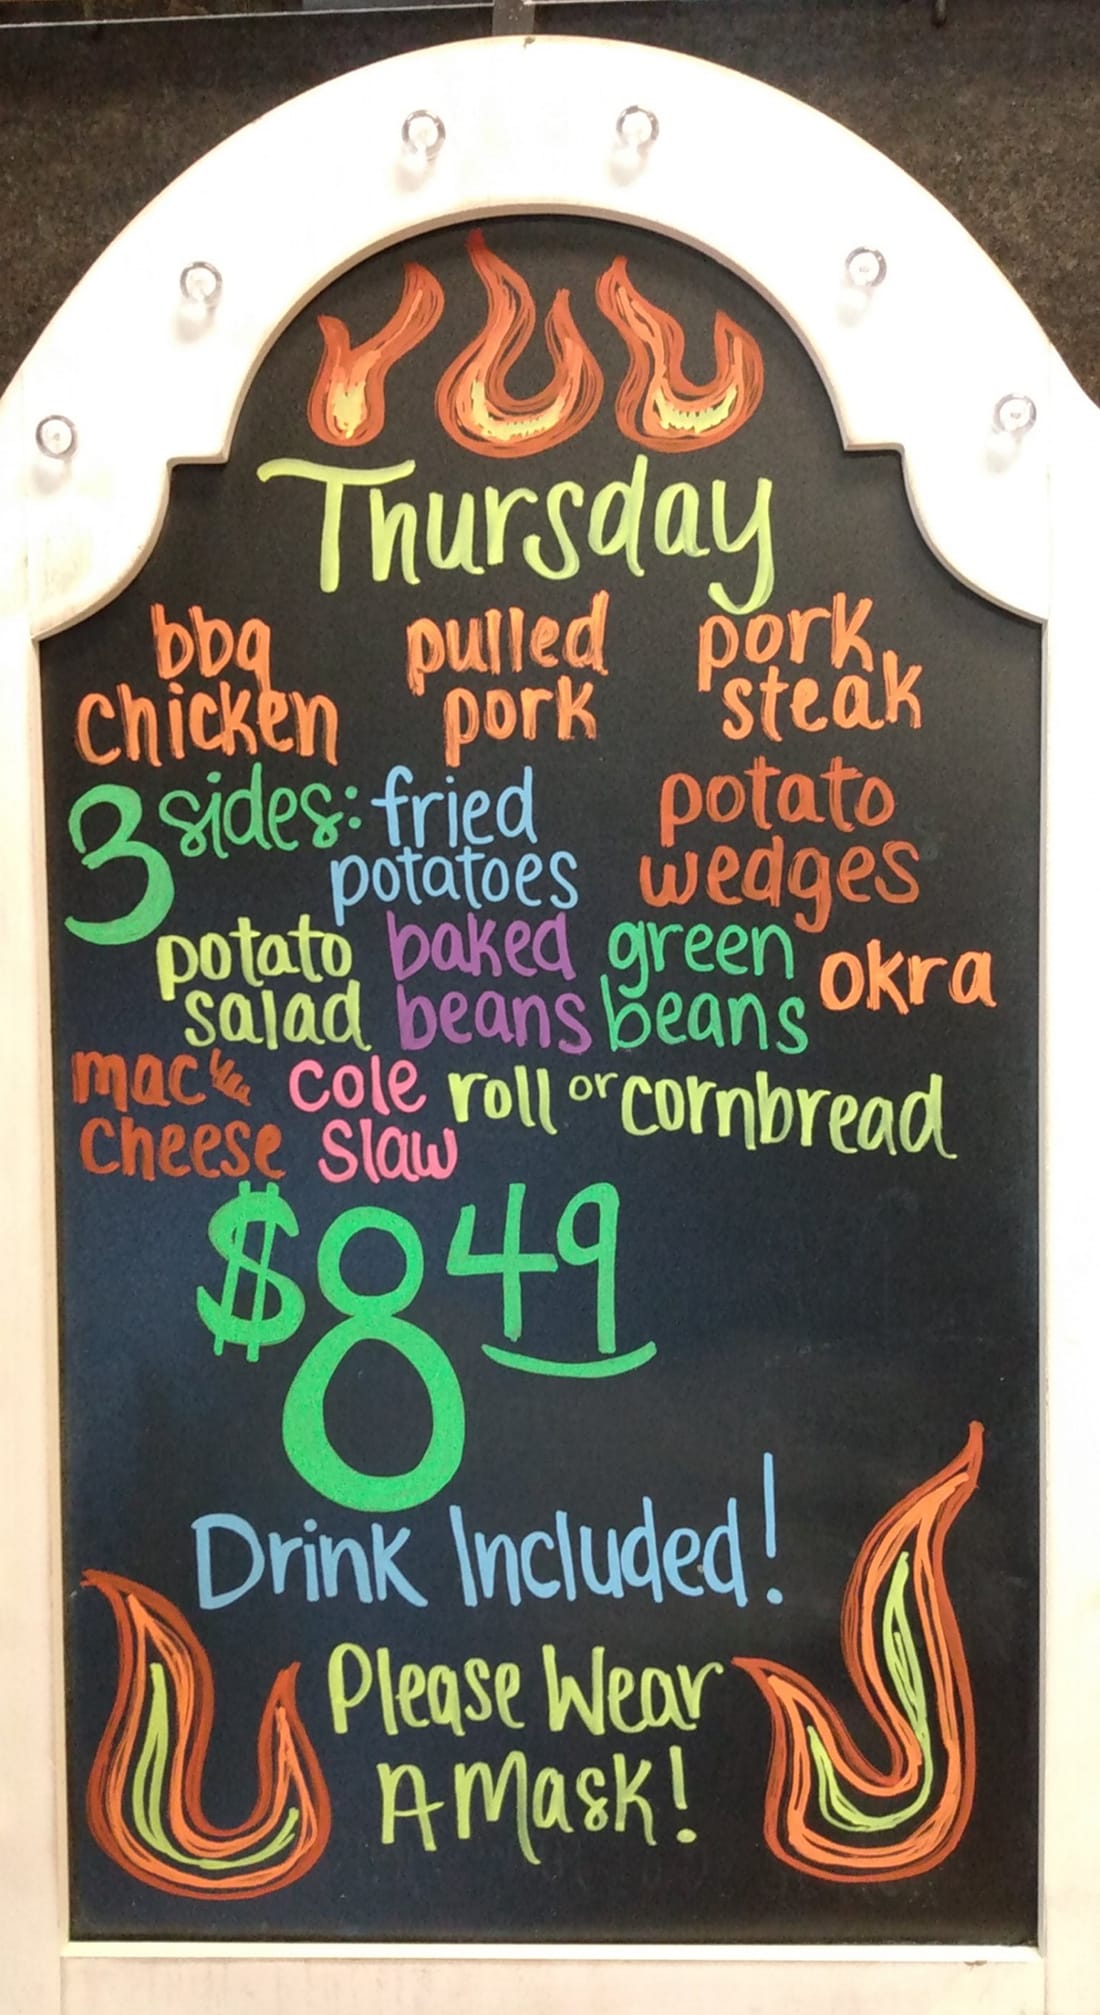 Thursday
bbq pulled pork
chicken pork steak
3 sides: fried potato
potatoes wedges
potato baked green okra
salad beans beans
mac & cole roll or cornbread
cheese slaw
$8 49
Drink Included!
Please Wear
A Mask!